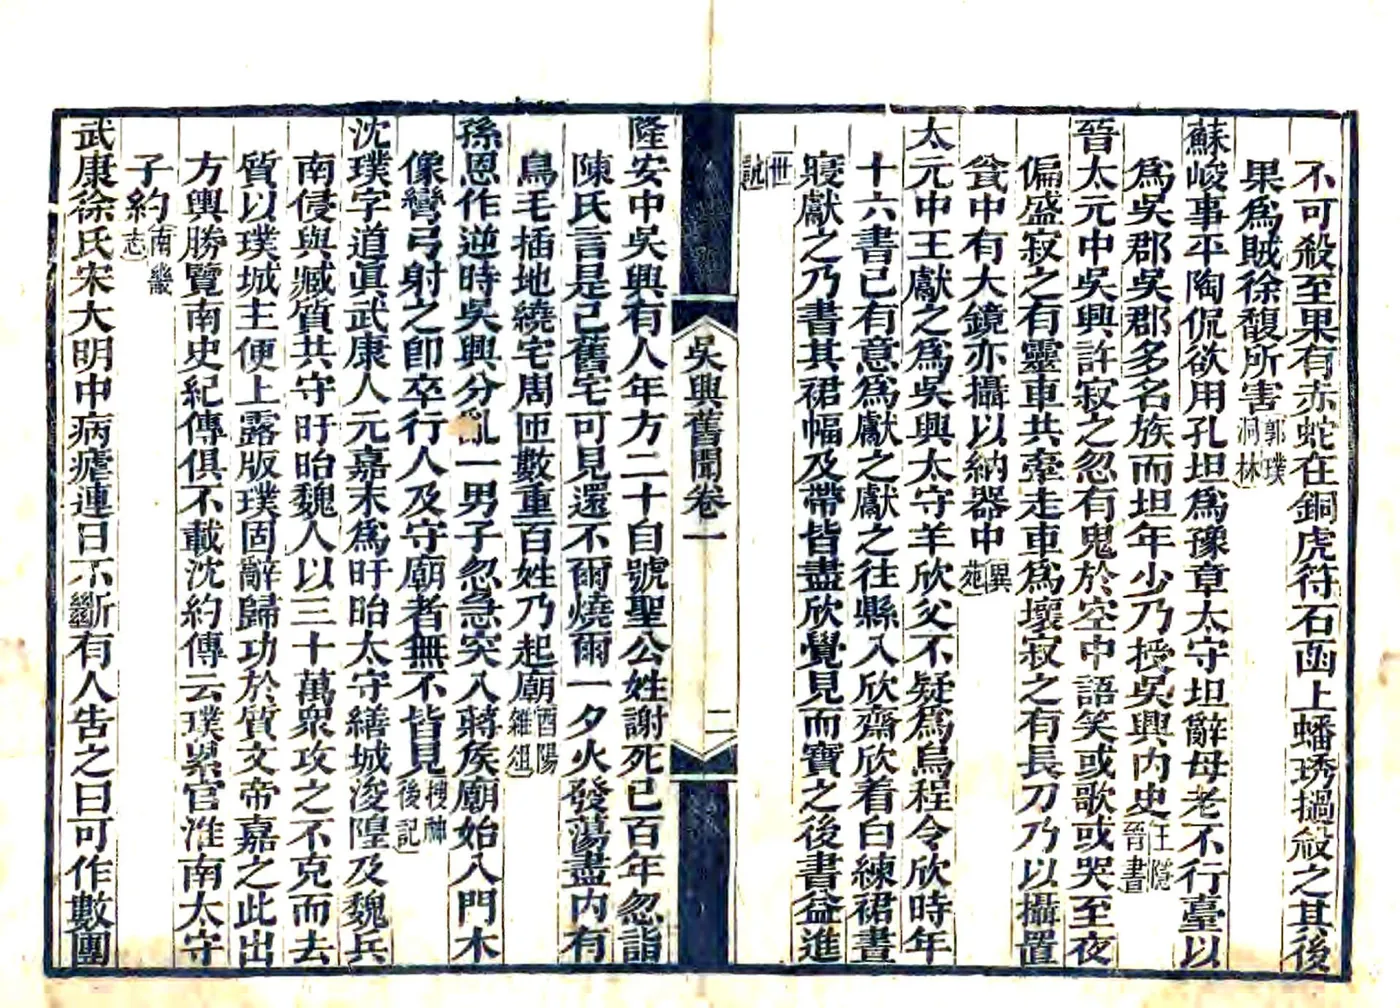 不可殺至果有赤蛇在銅虎符石函上蟠琇撾殺之其後
果爲賊徐馥所害郭璞洞林
蘇峻事平陶侃欲用孔坦爲豫章太守坦辭母老不行臺以
爲吳郡吳郡多名族而坦年少乃授吳興內史王隱晉書
晉太元中吳興許寂之忽有鬼於空中語笑或歌或哭至夜
偏盛寂之有靈車共牽走車爲壞寂之有長刀乃以攝置
瓮中有大鏡亦攝以納器中異苑
太元中王獻之爲吳興太守羊欣父不疑爲烏程令欣時年
十六書已有意爲獻之獻之往縣入欣齋欣着白練裙晝
寢獻之乃書其裙幅及帶皆盡欣覺見而寶之後書益進
世說
吳興舊聞卷一
二
隆安中吳興有人年方二十自號聖公姓謝死已百年忽詣
陳氏言是已舊宅可見還不爾燒爾一夕火發蕩盡內有
鳥毛插地繞宅周匝數重百姓乃起廟酉陽雜俎
孫恩作逆時吳興分亂一男子忽急突入蔣侯廟始入門木
像彎弓射之卽卒行人及守廟者無不皆見搜神後記
沈璞字道眞武康人元嘉末爲盱眙太守繕城浚隍及魏兵
南侵與臧質共守盱眙魏人以三十萬衆攻之不克而去
質以璞城主便上露版璞固辭歸功於質文帝嘉之此出
方輿勝覽南史紀傳俱不載沈約傳云璞累官淮南太守
子約南畿志
武康徐氏宋大明中病瘧連日不斷有人告之曰可作數團